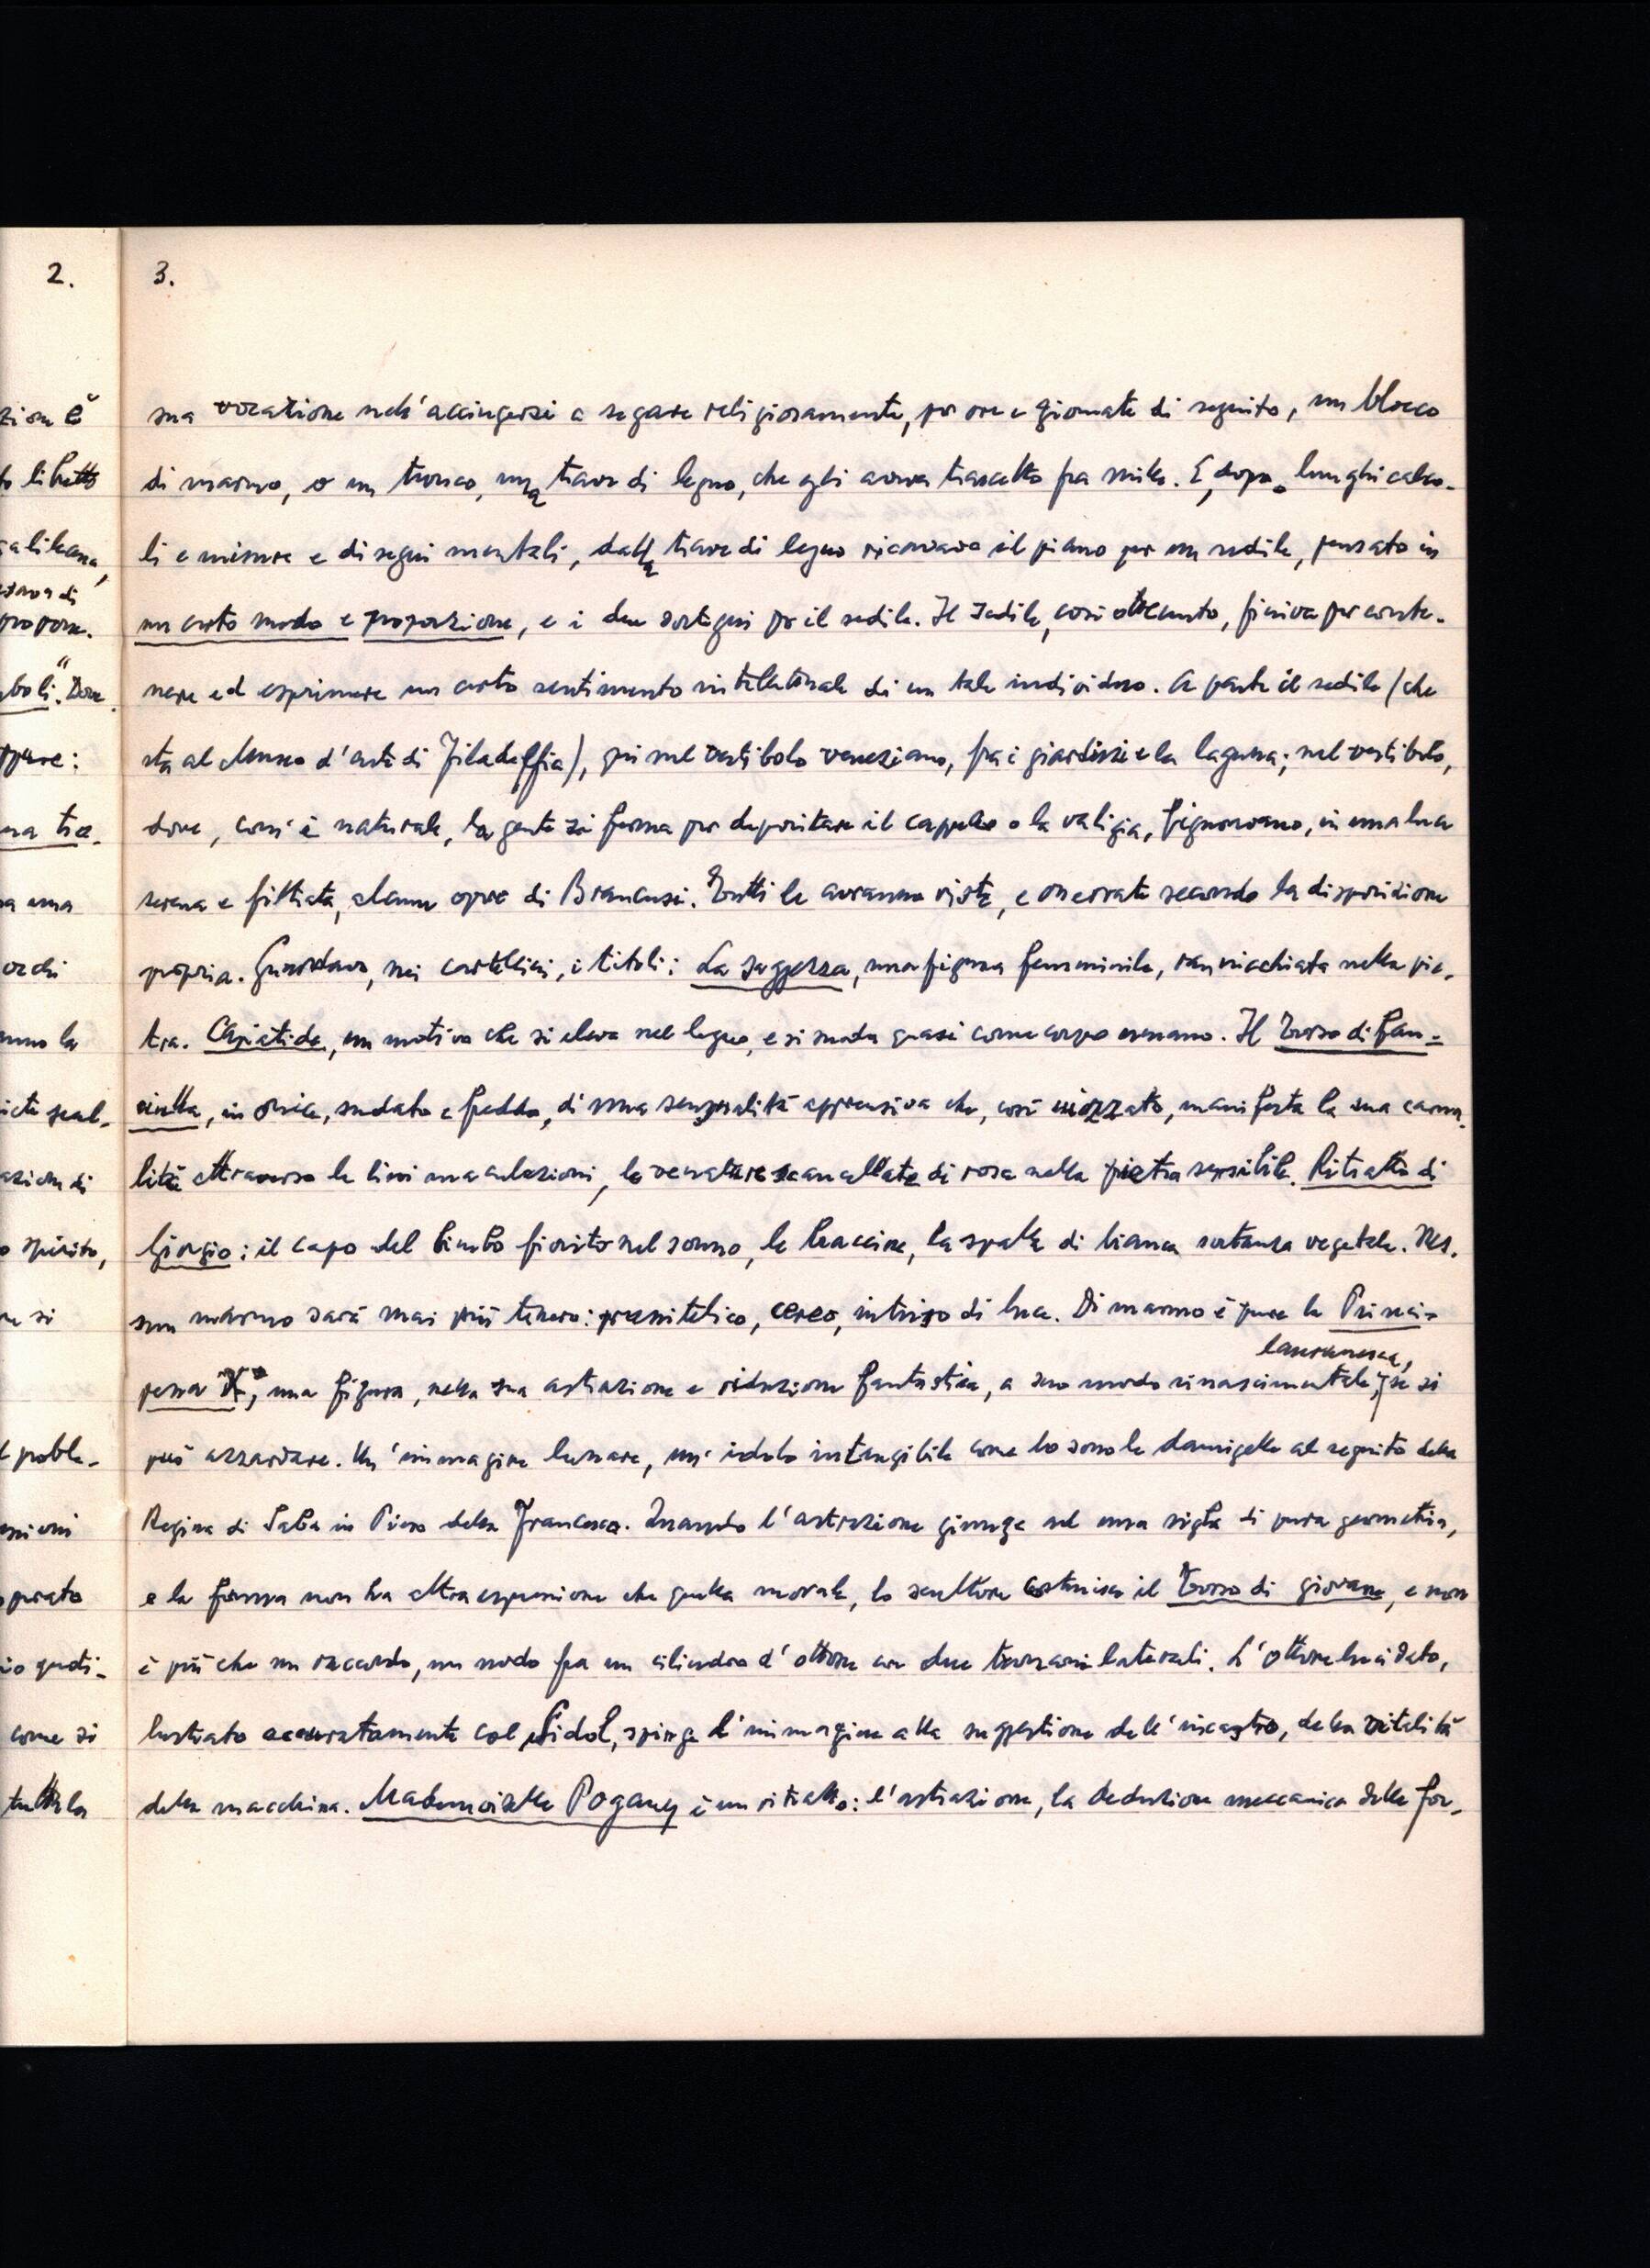 2.
zione è
o libretto
galileana,
stava di
propone.
boli". Dove
ppure:
una tra-
a una
occhi
anno la
icti scal-
azioni di
o spirito,
re si
l proble-
ssioni
sperato
io quoti-
come si
tutta la
3.
sua vocazione nell'accingersi a segare religiosamente, per ore e giornate di seguito, un blocco
di marmo, o un tronco, una trave di legno, che egli aveva trascelto fra mille. E, dopo lunghi calco-
li e misure e disegni mentali, dalla trave di legno ricavava il piano per un sedile, pensato in
un certo modo e proporzione, e i due sostegni per il sedile. Il sedile, così ottenuto, finiva per conte-
nere ed esprimere un certo sentimento intellettuale di un tale individuo. A parte il sedile (che
sta al Museo d'arte di Filadelfia), qui nel vestibolo veneziano, fra i giardini e la laguna; nel vestibolo,
dove, com'è naturale, la gente si ferma per depositare il cappello o la valigia, figuravano, in una luce
serena e filtrata, alcune opere di Brancusi. Tutti le avranno viste, e osservate secondo la disposizione
propria. Guardavo, nei cartellini, i titoli: La saggezza, una figura femminile, rannicchiata nella pie-
tra. Cariatide, un motivo che si eleva nel legno, e si snoda quasi come corpo umano. Il Torso di fan-
ciulla, in onice, sudato e freddo, di una sensualità apprensiva che, così mozzato, manifesta la sua carna-
lità attraverso le lievi maculazioni, le venature scanellate di rosa nella pietra sensibile. Ritratto di
Giorgio: il capo del bimbo fiorito nel sonno, le braccine, la spalla di bianca sostanza vegetale. Nes-
sun marmo sarà mai più tenero: prassitelico, cereo, intriso di luce. Di marmo è pure la Princi-
lauranesca,
pessa X, una figura, nella sua astrazione e riduzione fantastica, a suo modo rinascimentale, se si
può azzardare. Un'immagine lunare, un'idolo intangibile come lo sono le damigelle al seguito della
Regina di Saba in Piero della Francesca. Quando l'astrazione giunge ad una sigla di pura geometria,
e la forma non ha altra espressione che quella morale, lo scultore costruisce il Torso di giovane, e non
è più che un raccordo, un nodo fra un cilindro d'ottone con due tronconi laterali. L'ottone lucidato,
lustrato accuratamente col Sidol, spinge l'immagine alla suggestione dell'incastro, della vitalità
della macchina. Mademoiselle Pogany è un ritratto: l'astrazione, la deduzione meccanica delle for-